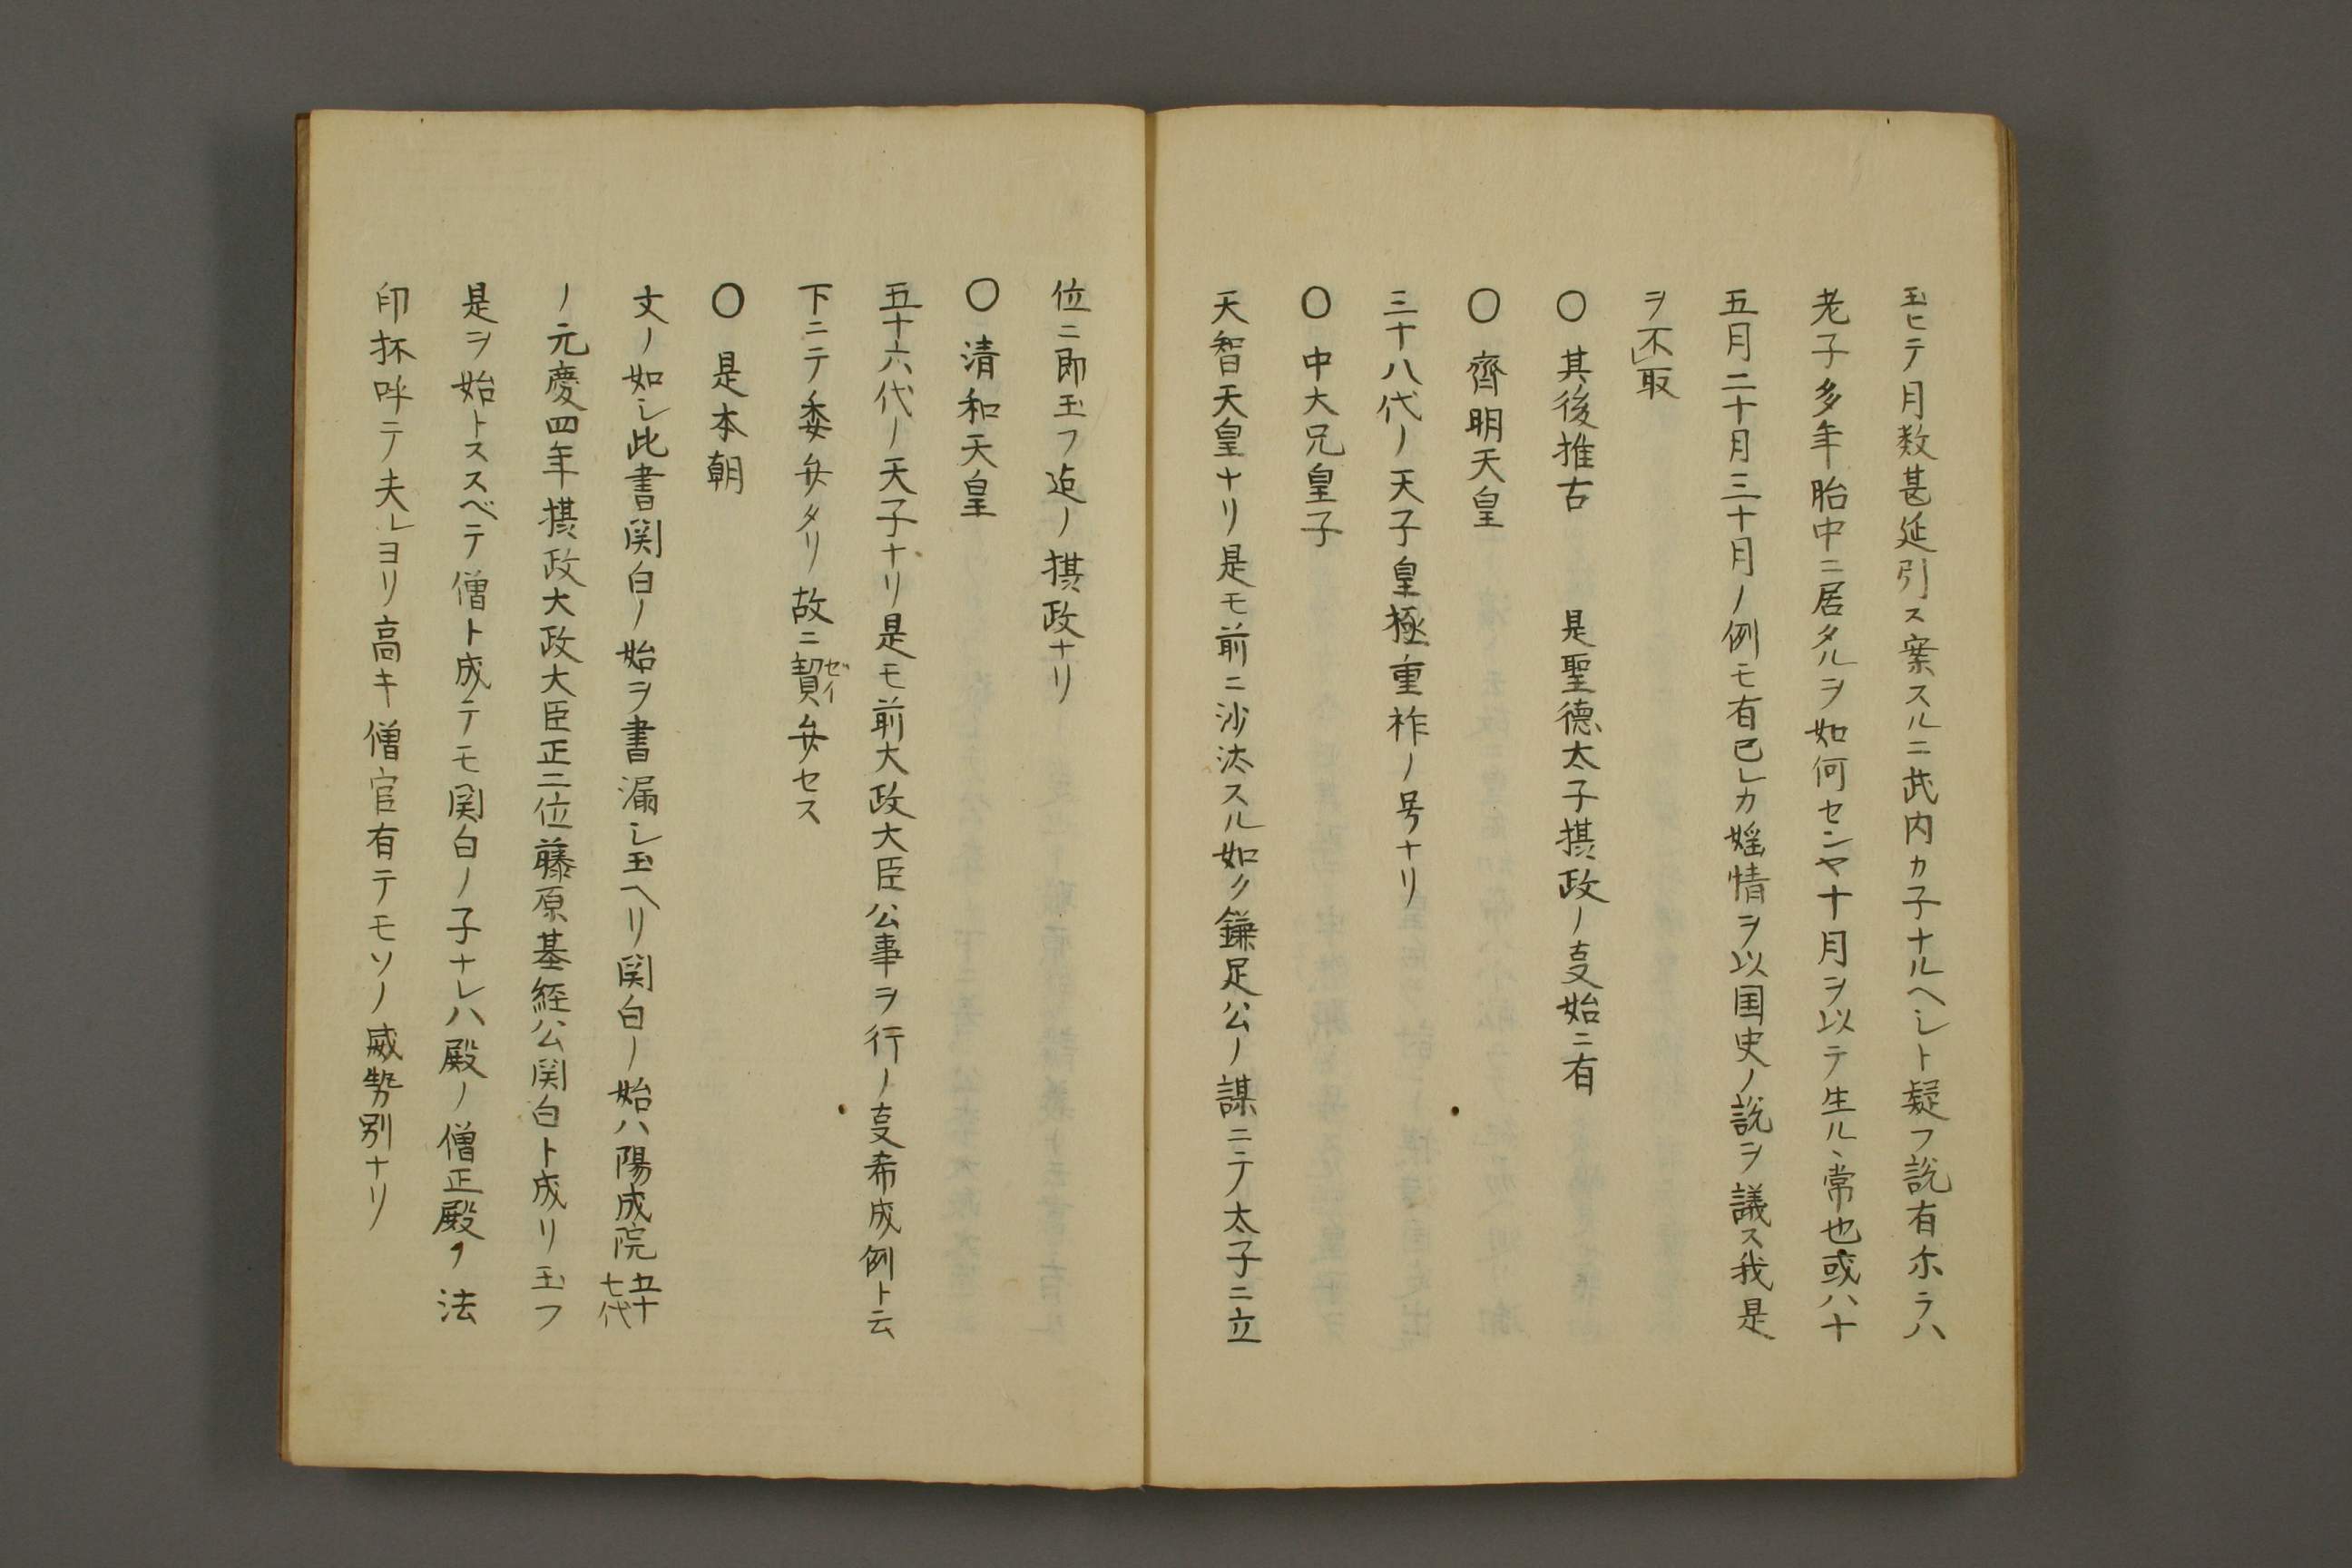 玉ヒテ月数甚延引ス案スルニ武内カ子ナルヘシト疑フ説有尓ラハ
老子多年胎中ニ居タルヲ如何センヤ十月ヲ以テ生ルヽ常也或ハ十
五月二十月三十月ノ例モ有已レカ婬情ヲ以国史ノ説ヲ議ス我是
ヲ不レ取
〇其後推古　是聖徳太子摂政ノ叓始ニ有
〇齊明天皇
三十八代ノ天子皇極重祚ノ号ナリ
〇中大兄皇子
天智天皇ナリ是モ前ニ沙汰スル如ク鎌足公ノ謀ニテ太子ニ立
位ニ即玉フ迠ノ摂政ナリ
〇清和天皇
五十六代ノ天子ナリ是モ前大政大臣公事ヲ行ノ叓希成例ト云
下ニテ委弁タリ故ニ贅ゼイ弁セス
〇是本朝
文ノ如シ此書関白ノ始ヲ書漏シ玉ヘリ関白ノ始ハ陽成院五十七代
ノ元慶四年摂政大政大臣正二位藤原基経公関白ト成リ玉フ
是ヲ始トススベテ僧ト成テモ関白ノ子ナレハ殿ノ僧正殿ノ法
印抔呼テ夫レヨリ高キ僧官有テモソノ威勢別ナリ